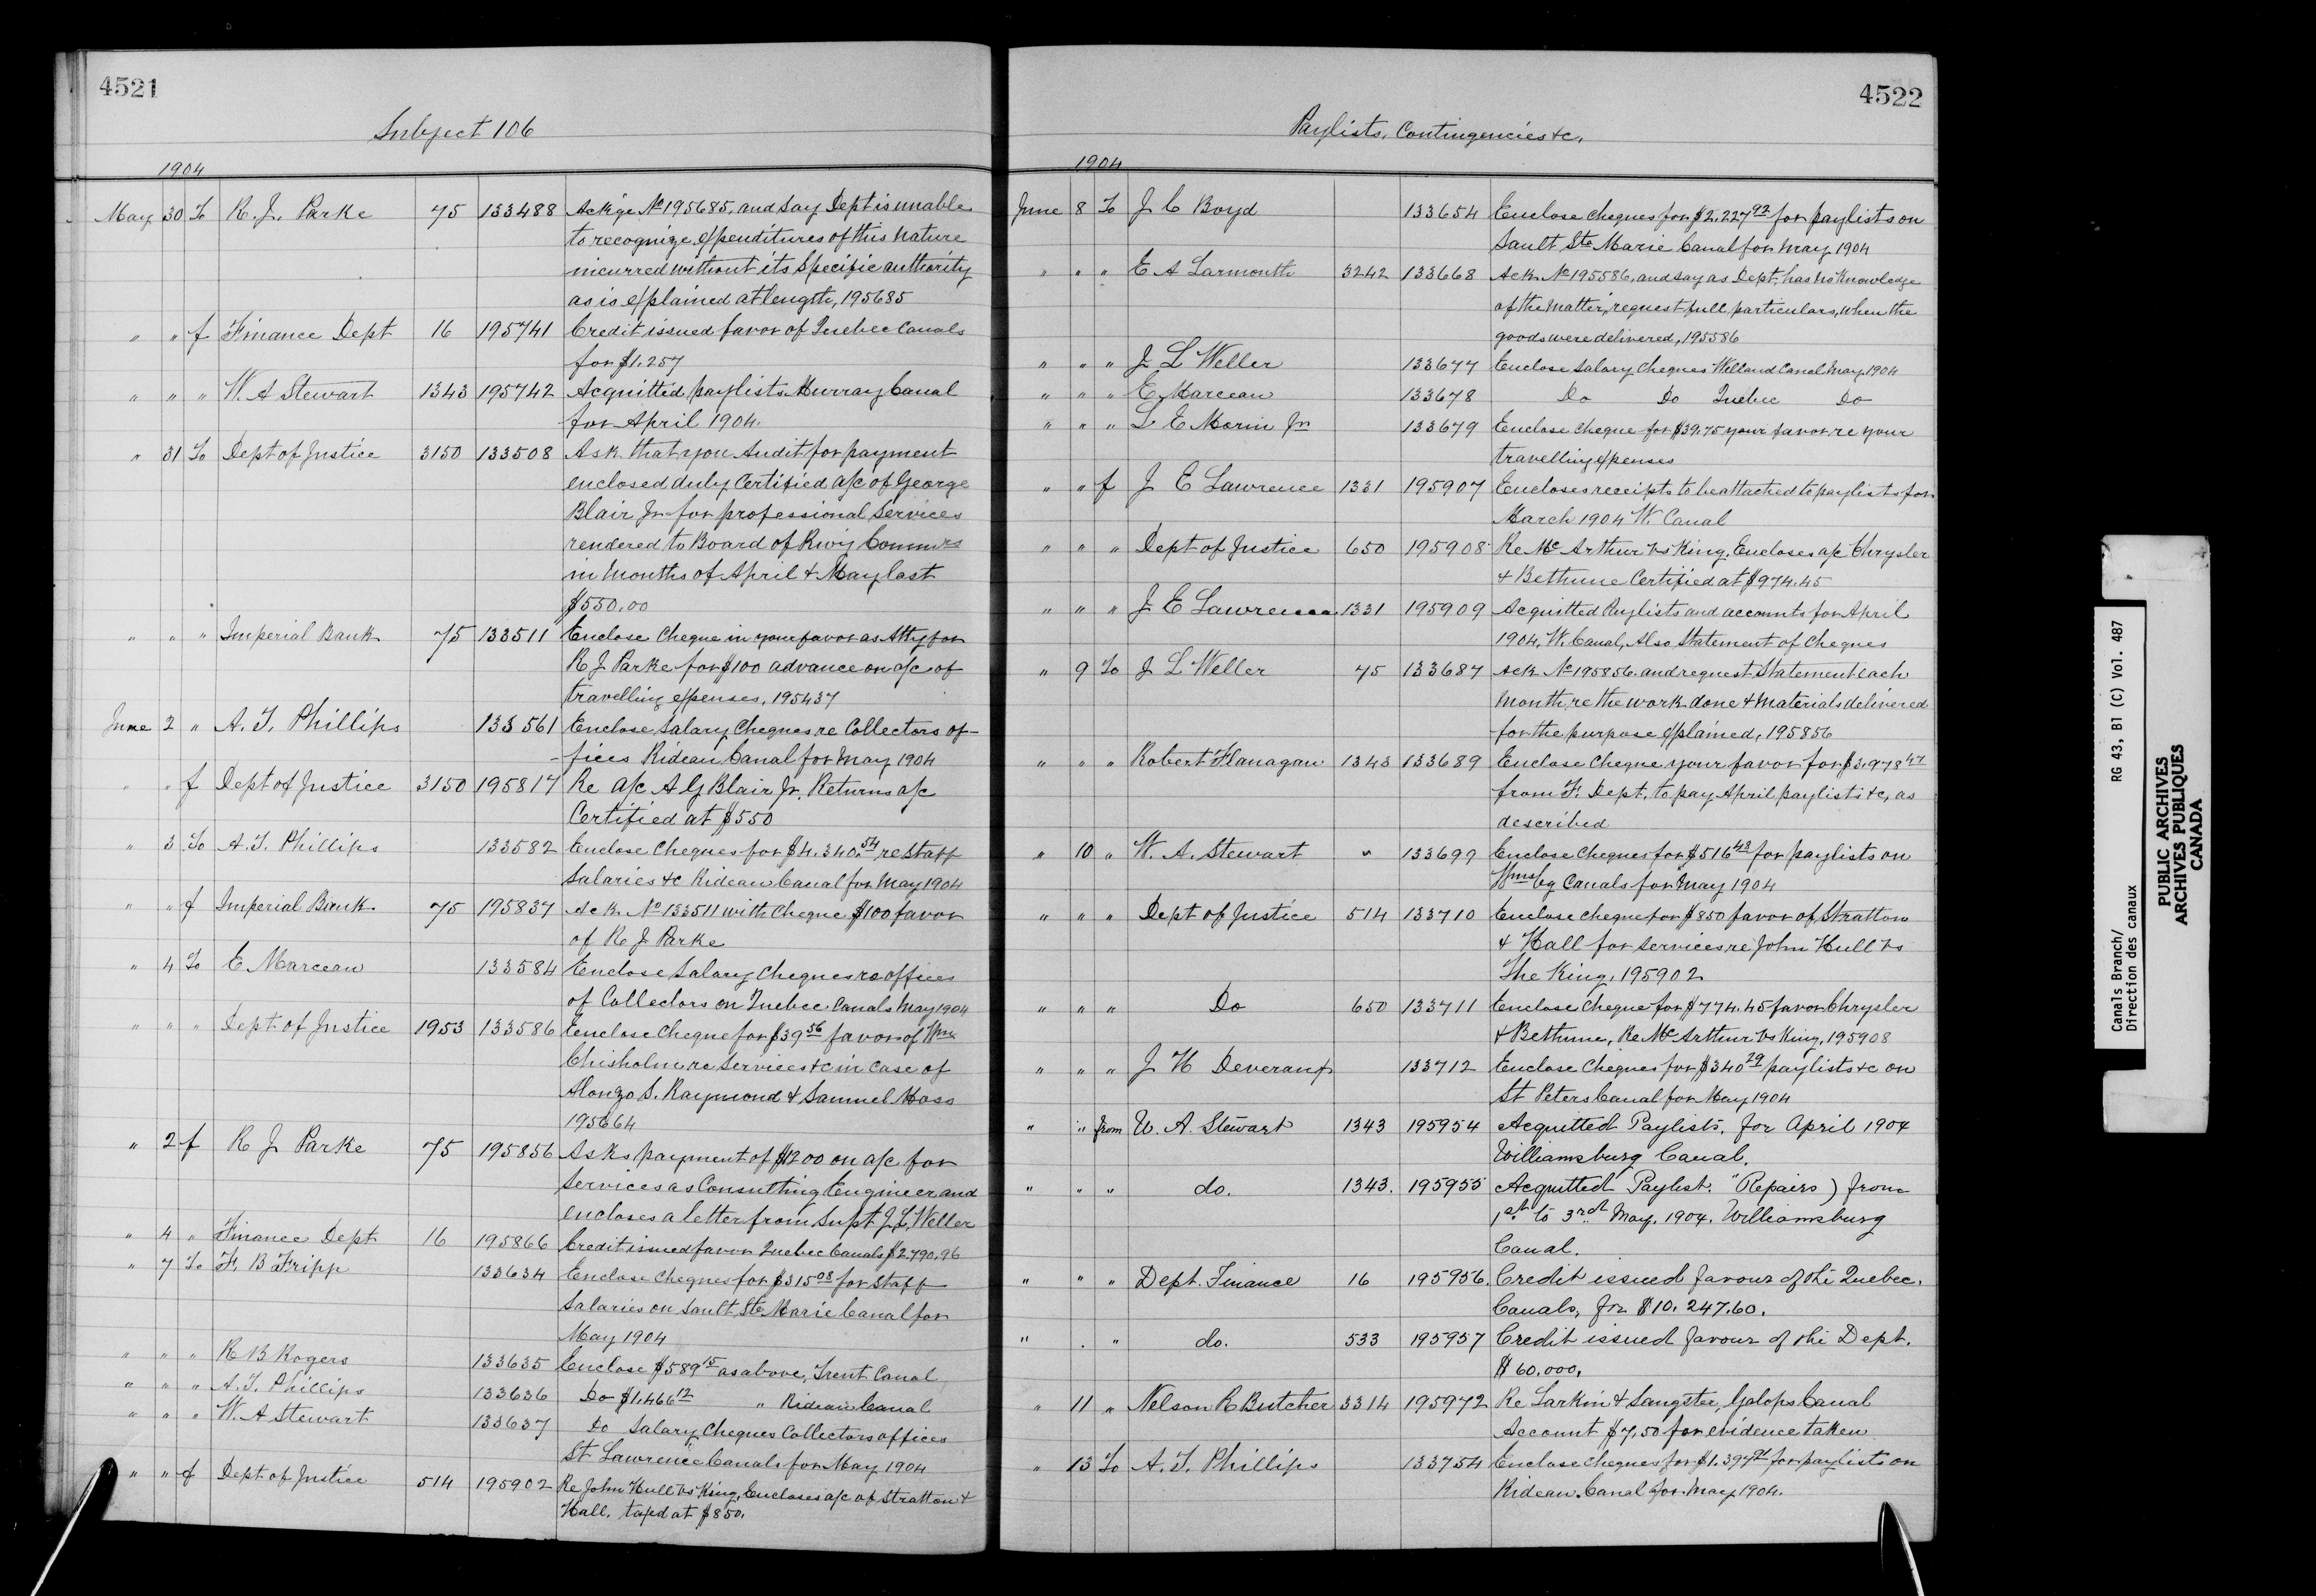 4521
Subject 106
1904
May 30 To R. J. Parke 75 133488 Ackge No 195685, and say Dept is unable
to recognize expenditures of this nature
incurred without its specific authority
as is explained at length, 195685
" " f Finance Dept 16 195741 Credit issued favor of Quebec Canals
for $1.257
" " " W. A Stewart 1343 195742 Acquitted paylists Murray Canal
for April 1904.
" 31 To Dept of Justice 3150 133508 Ask that you Audit for payment
enclosed duly Certified a/c of George
Blair Jr for professional Services
rendered to Board of Rwy Commrs
in months of April & May last
$550.00
" " " Imperial Bank 75 133511 Enclose Cheque in your favor as Atty for
R J Parke for $100 advance on a/c of
travelling expenses, 195437
June 2 " A. T. Phillips 133561 Enclose Salary Cheques re Collectors of-
-fices Rideau Canal for May 1904
" " f Dept of Justice 3150 195817 Re a/c A G Blair Jr. Returns a/c
Certified at $550
" 3 To A. T. Phillips 133582 Enclose Cheques for $4.340.54 re Staff
Salaries &c Rideau Canal for May 1904
" " f Imperial Bank 75 195837 Ack No 133511 with Cheque $100 favor
of R J Parke
" 4 To E Marceau 133584 Enclose Salary Cheques re offices
of Collectors on Quebec Canals May 1904
" " " Dept of Justice 1953 133586 Enclose Cheque for $39 56 favor of Wm
Chisholm re Services &c in case of
Alonzo S. Raymond & Samuel Moss
195664
" 2 f R J Parke 75 195856 Asks payment of $1200 on a/c for
Services as Consulting Engineer and
encloses a letter from Supt J. L. Weller
" 4 " Finance Dept 16 195866 Credit issued favor Quebec Canals $2.790.96
" 7 To F. B Fripp 133634 Enclose Cheques for $315 08 for Staff
Salaries on Sault Ste Marie Canal for
May 1904
" " " R B Rogers 133635 Enclose $589 15 as above, Trent Canal
" " " A. T. Phillips 133636 Do $1.466 12 " Rideau Canal
" " " W. A Stewart 133637 Do Salary Cheques Collectors offices
St Lawrence Canals for May 1904
" " f Dept of Justice 514 195902 Re John Hull vs King, Encloses a/c of Stratton &
Hall, taxed at $850.
4522
Paylists, Contingencies &c.
1904
June 8 To J C Boyd 133654 Enclose Cheques for $2,227 92 for paylists on
Sault Ste Marie Canal for May 1904
" " " E A Larmonth 3242 133668 Ack No 195586, and say as Dept, has no Knowledge
of the matter, request full particulars, when the
goods were delivered, 195586
" " " J L Weller 133677 Enclose Salary Cheques Welland Canal May 1904
" " " E Marceau 133678 Do Do Quebec Do
" " " L E Morin Jr 133679 Enclose Cheque for $39.75 your favor re your
travelling expenses
" " f J E Lawrence 1331 195907 Encloses receipts to be attached to paylists for
March 1904 W. Canal
" " " Dept of Justice 650 195908 Re McArthur vs King, Encloses a/c Chrysler
& Bethune Certified at $974.45
" " " J E Lawrence 1331 195909 Acquitted Paylists and accounts for April
1904, W. Canal, Also Statement of Cheques
" 9 To J L Weller 75 133687 Ack No 195856. and request Statement each
month, re the work done & materials delivered
for the purpose explained, 195856
" " " Robert Flanagan 1343 133689 Enclose Cheque your favor for $3.978 47
from F. Dept. to pay April paylists &c, as
described
" 10 " W. A. Stewart " 133699 Enclose Cheques for $516 48 for paylists on
Wmsbg Canals for May 1904
" " " Dept of Justice 514 133710 Enclose Cheque for $850 favor of Stratton
& Hall for services re John Hull vs
The King, 195902
" " " Do 650 133711 Enclose Cheque for $774.45 favor Chrysler
& Bethune, Re McArthur vs King, 195908
" " " J H Deveraux 133712 Enclose Cheques for $340 29 paylists &c on
St Peters Canal for May 1904
" " from W. A. Stewart 1343 195954 Acquitted Paylists, for April 1904
Williamsburg Canal.
" " " do. 1343. 195955 Acquitted Paylist. "Repairs) from
1st to 3rd May, 1904. Williamsburg
Canal.
" " " Dept. Finance 16 195956. Credit issued favour of the Quebec.
Canals, for $10.247.60.
" . " do. 533 195957 Credit issued favour of the Dept.
$60.000.
" 11 " Nelson R Butcher 3314 195972 Re Larkin & Sangster, Galops Canal
Account $7.50 for evidence taken
" 13 To A. T. Phillips 133754 Enclose Cheques for $1.397 for paylists on
Rideau Canal for May 1904.
Canals Branch/ RG 43, B1 (C) Vol. 487
Direction des canaux
PUBLIC ARCHIVES
ARCHIVES PUBLIQUES
CANADA